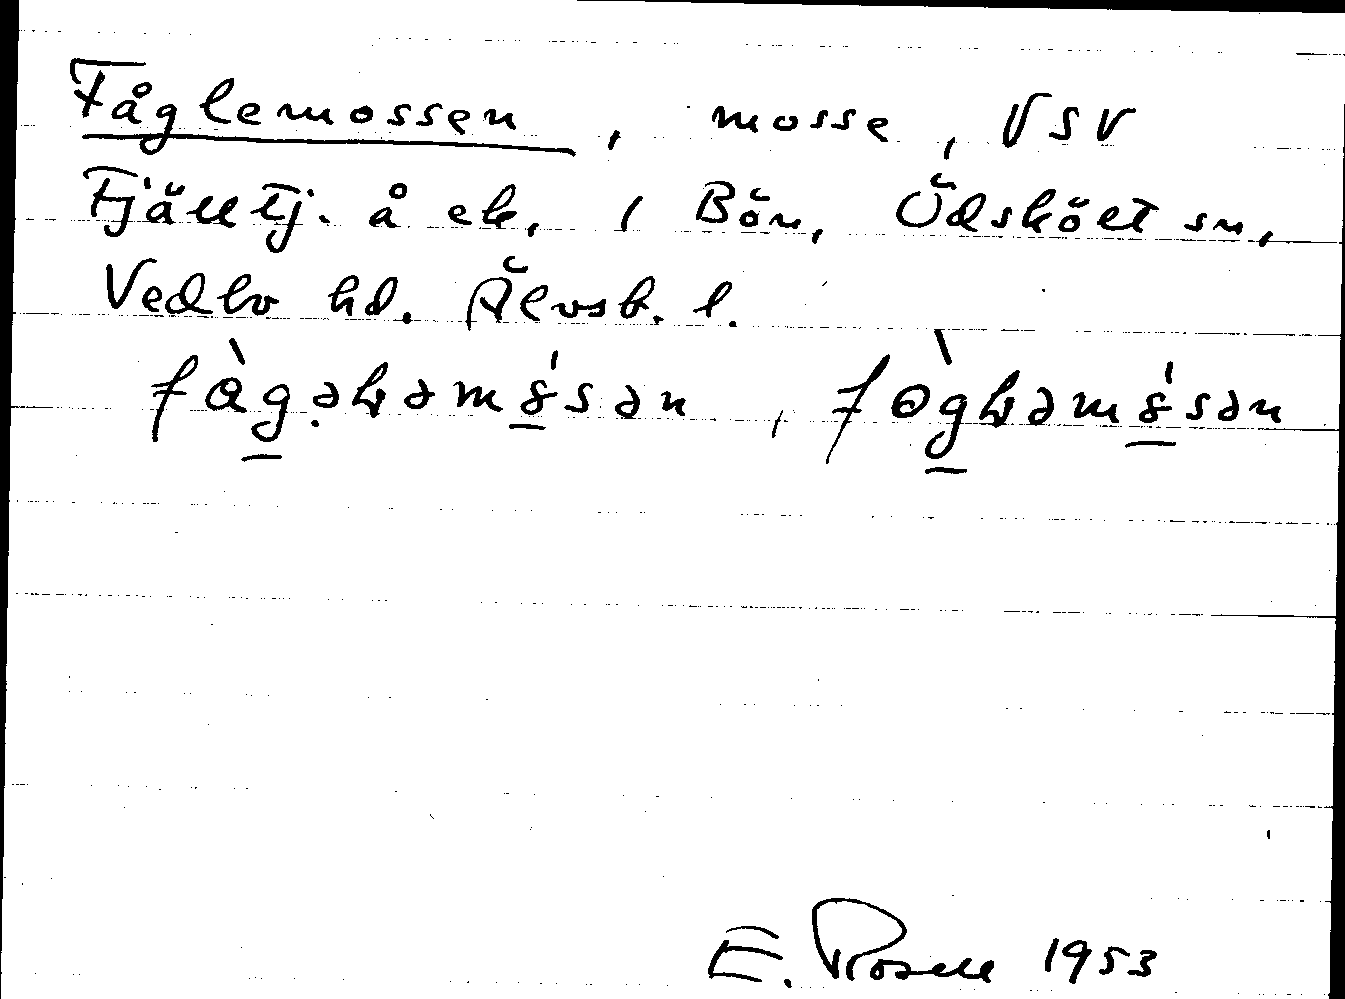 Fåglemossen, mosse, VSV
Fjälltj. å ek, i Bön, Ödskölt sn,
Vedbo hd. Älvsb. l.
E. Rosell 1953